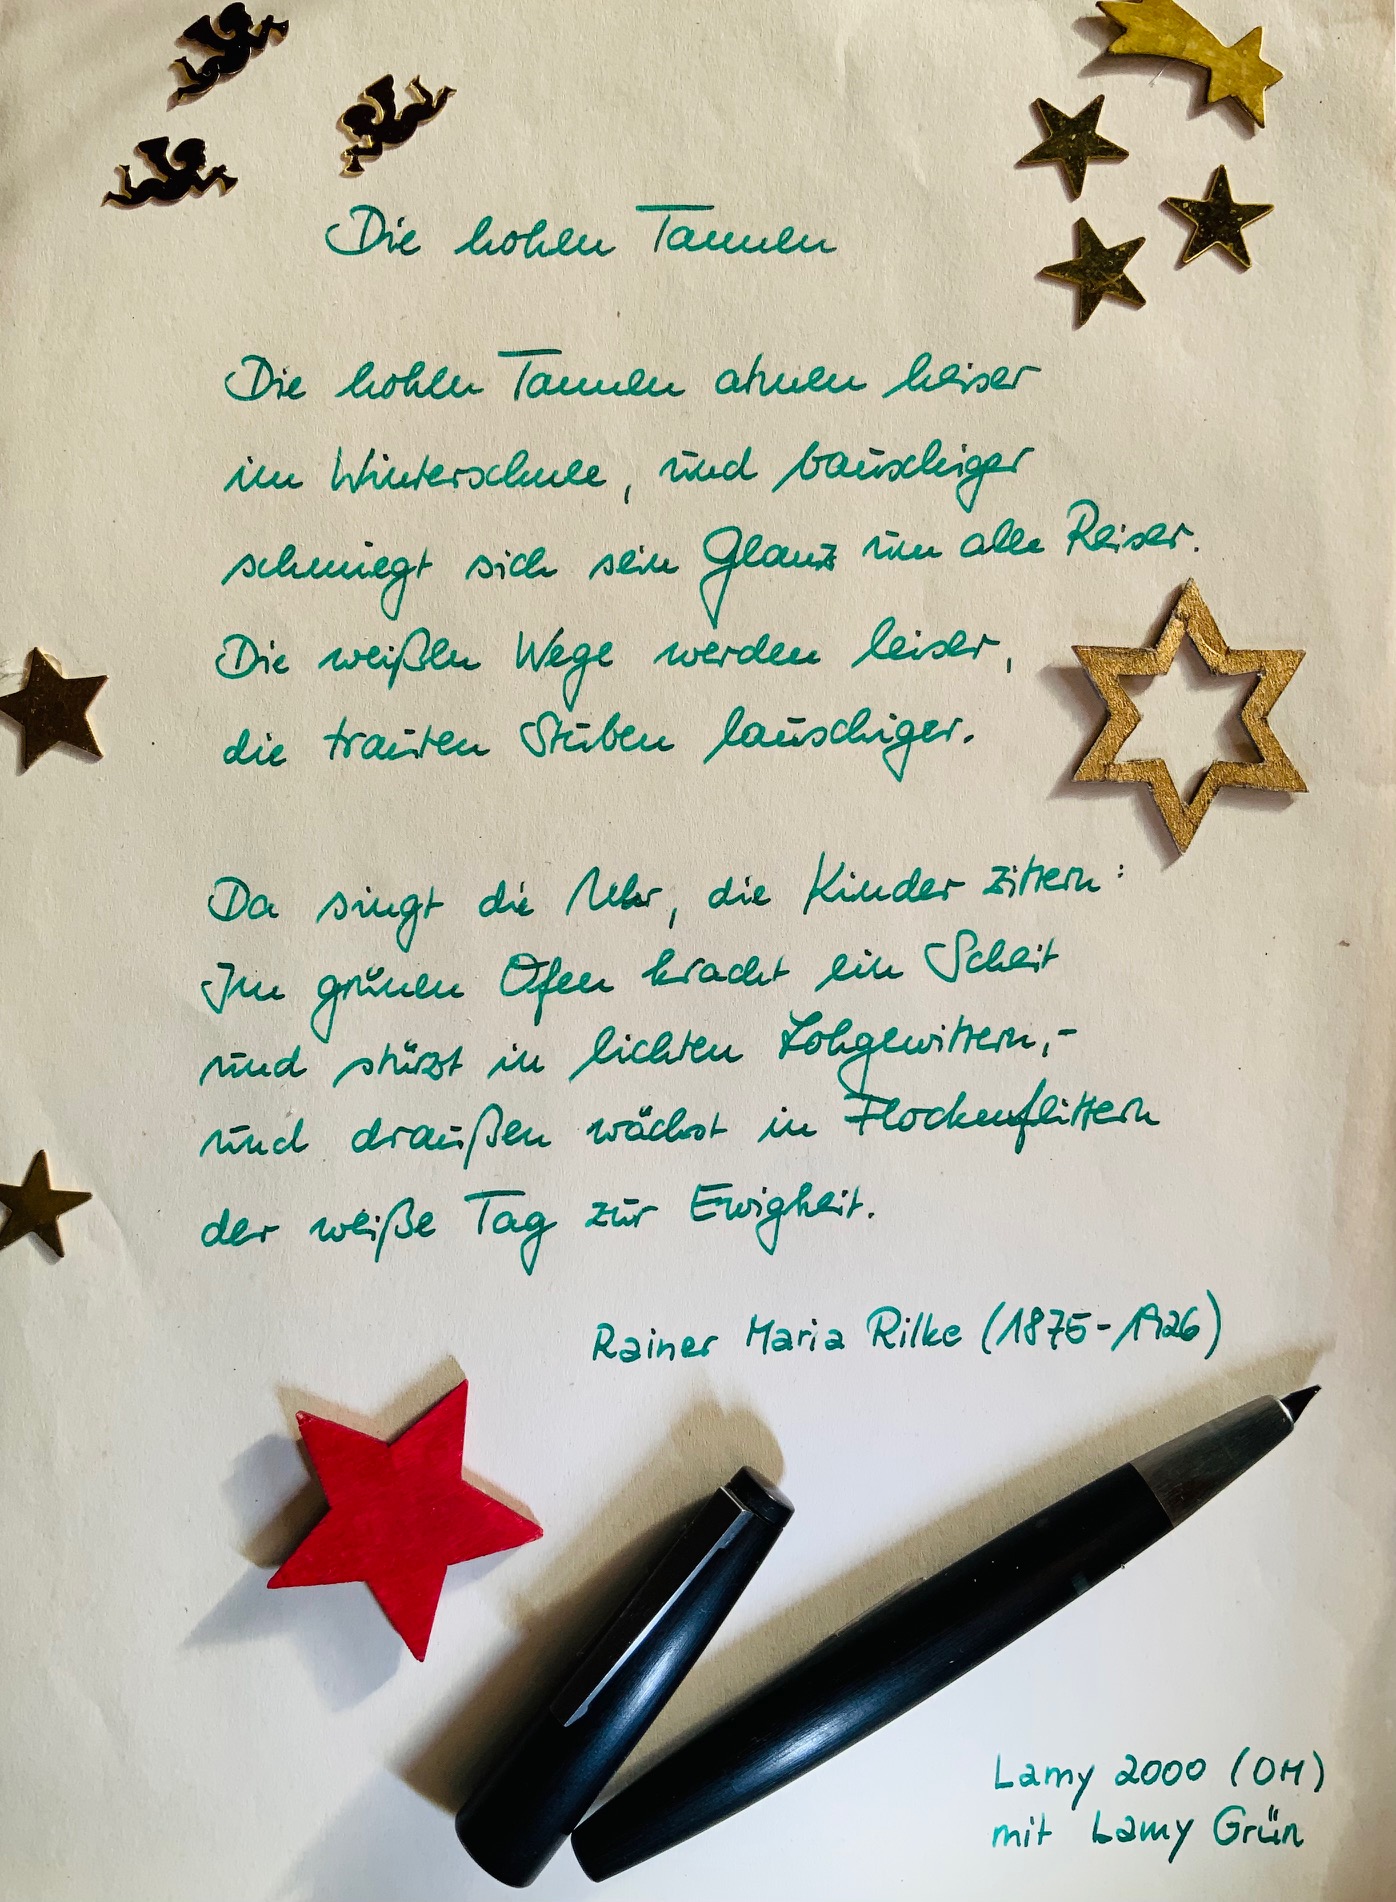 Die hohen Tannen
Die hohen Tannen atmen heiser
im Winterschnee, und bauschiger
schmiegt sich sein Glanz um alle Reiser.
Die weißen Wege werden leiser,
die trauten Stuben lauschiger.
Da singt die Uhr, die Kinder zittern:
Im grünen Ofen kracht ein Scheit
und stürzt in lichten Lohgewittern,-
und draußen wächst in Flockenflittern
der weiße Tag zur Ewigkeit.
Rainer Maria Rilke (1875-1926)
Lamy 2000 (OM)
mit Lamy Grün